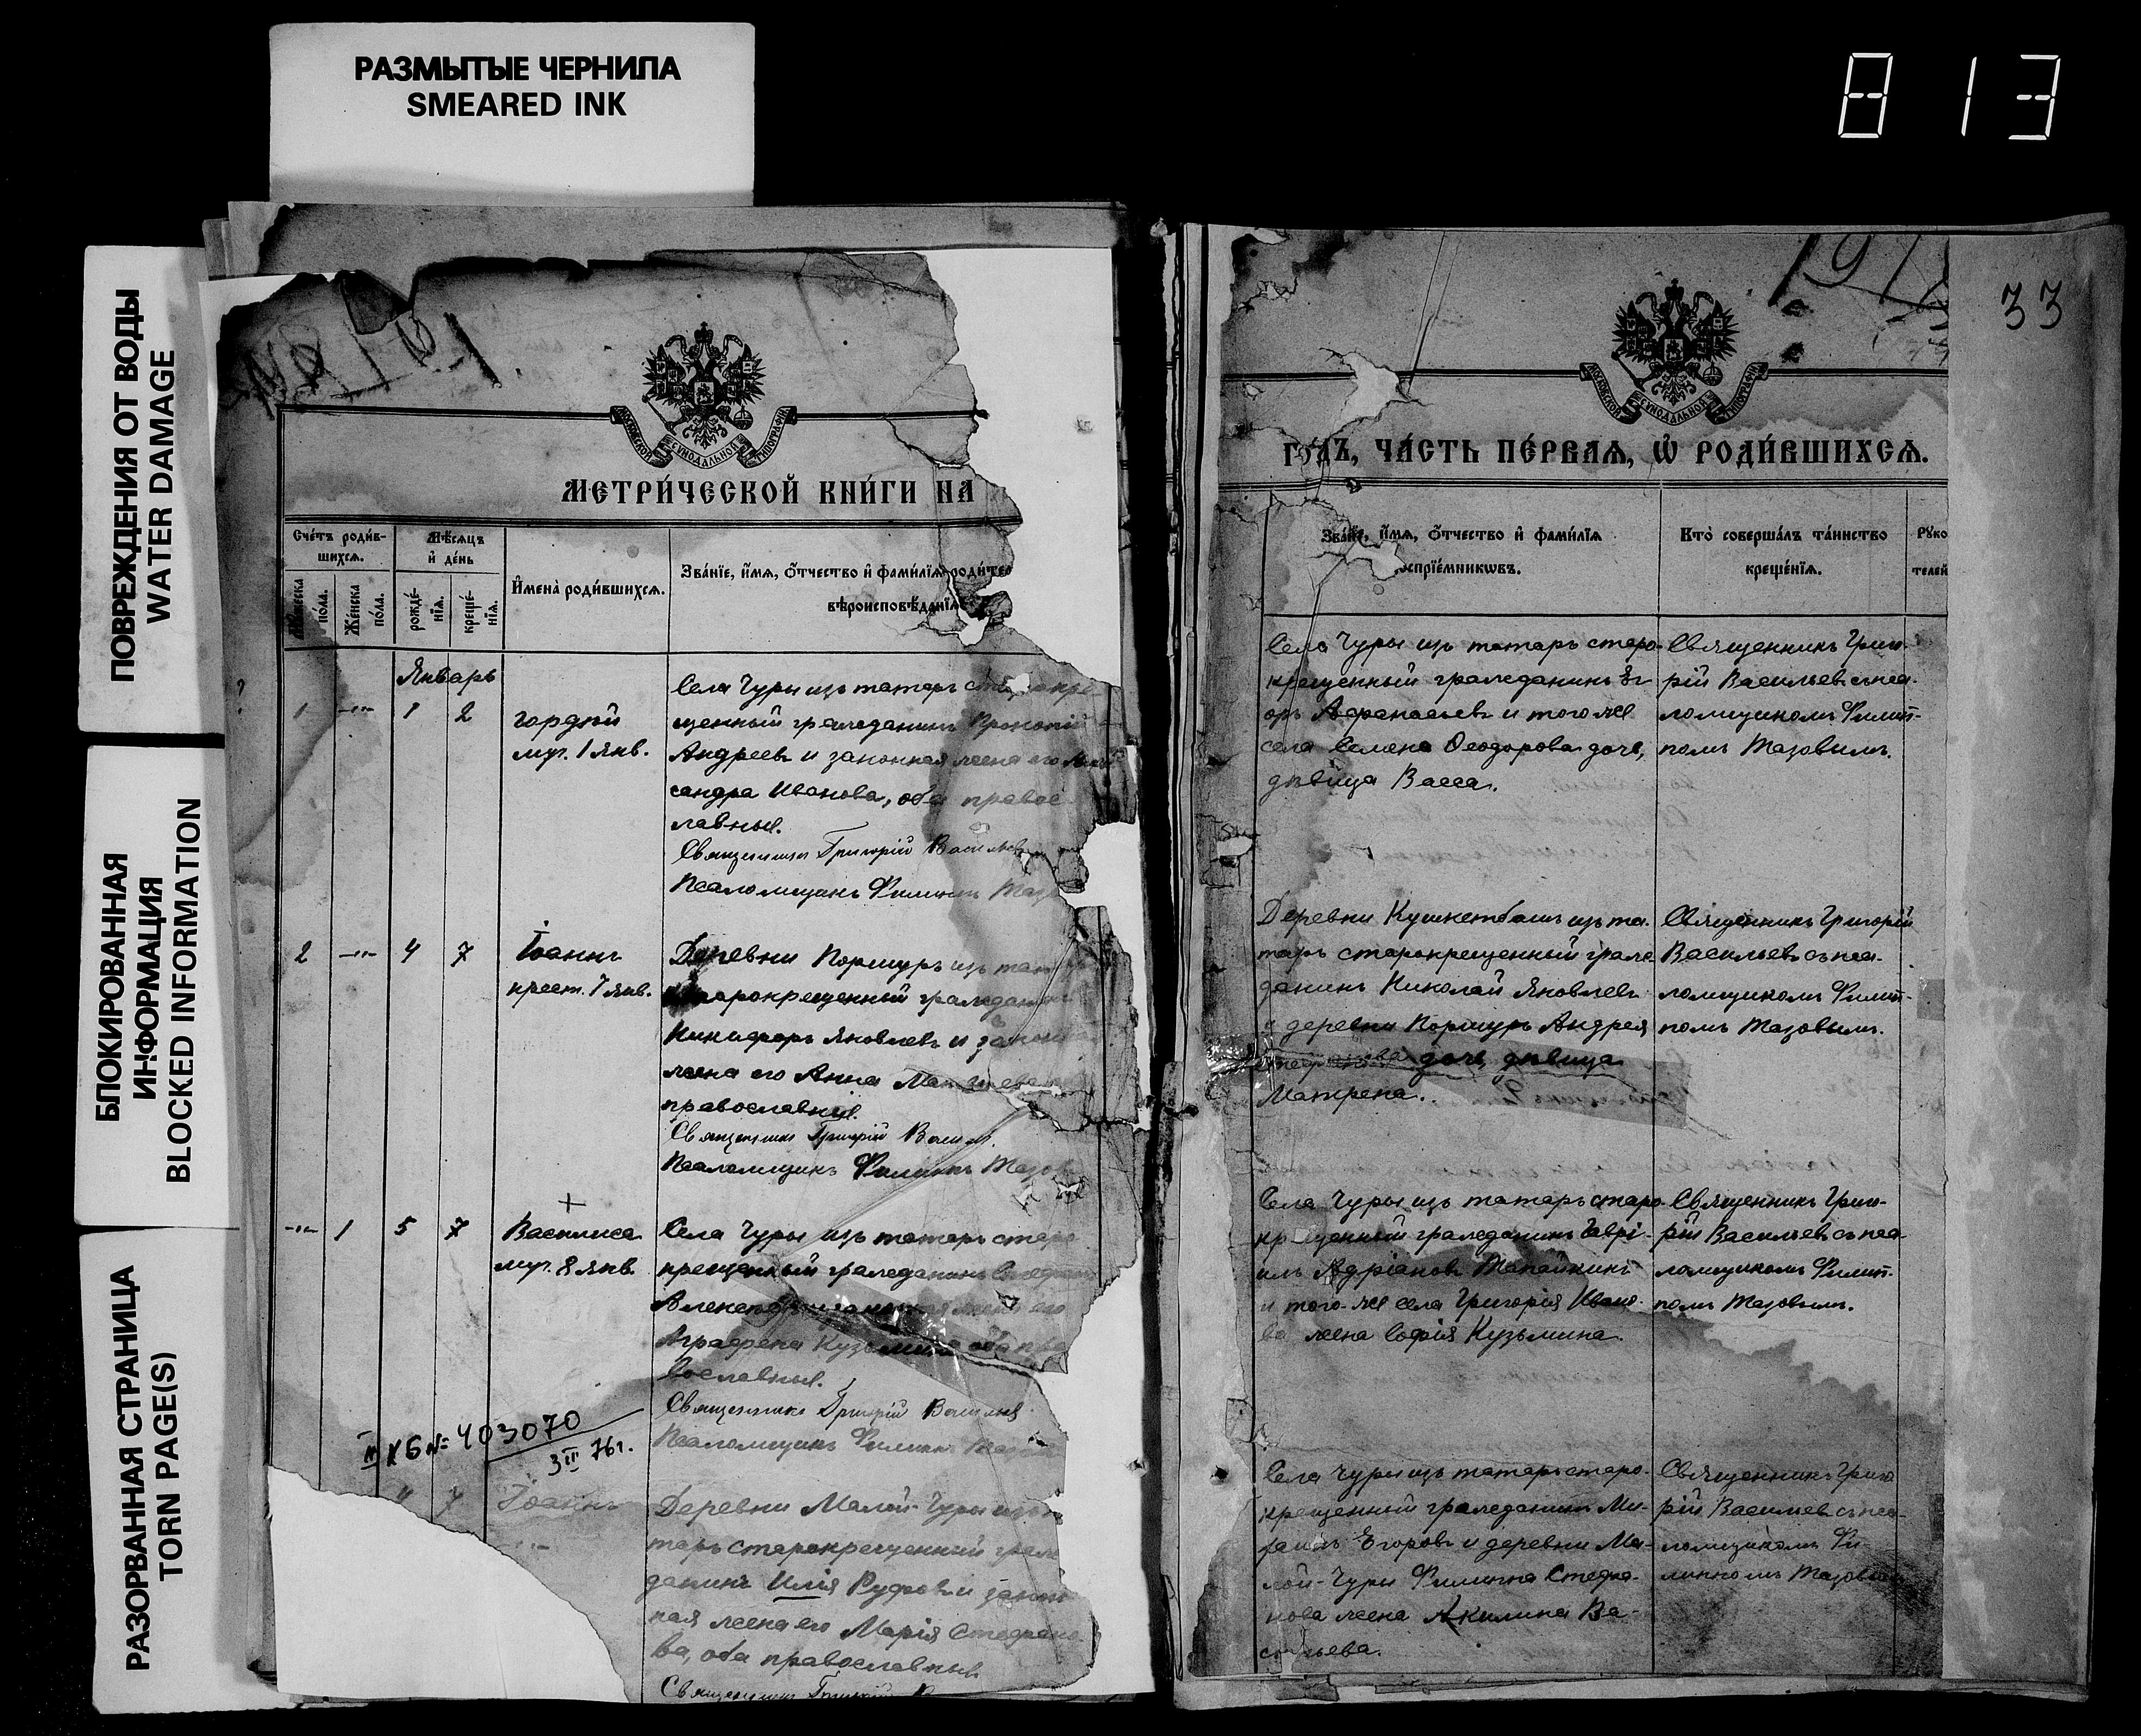 РАЗМЫТЫЕ ЧЕРНИЛА
SMEARED INK
813
ПОВРЕЖДЕНИЯ ОТ ВОДЫ
WATER DAMAGE
БЛОКИРОВАННАЯ
ИНФОРМАЦИЯ
BLOCKED INFORMATION
РАЗОРВАННАЯ СТРАНИЦА
TORN PAGE(S)
МОСКОВСКОЙ СѴНОДАЛЬНОЙ ТИПОГРАФІИ
МЕТРИ́ЧЕСКОЙ КНИ́ГИ НА
Сче́тъ роди́в-
шихся.
Му́жеска по́ла.
Же́нска по́ла.
Мѣ́сяцъ
и де́нь
рожде́-
нія.
креще́-
нія.
Имена̀ роди́вшихся.
Зва́ніе, и́мя, о́тчество и фами́лія роди́те
вѣроисповѣ́данія
Январь
1 -"- 1 2
Гордій
муч. 1 янв.
Села Чуры изъ татаръ
щенный гражданинъ Прокопій
Андреевъ и законная жена его
сандра Иванова, оба правос
лавные.
Священникъ Григорій Васильев
Псаломщикъ Филиппъ
2 -"- 4 7
Іоаннъ
крест. 7 янв.
Деревни Поршуръ изъ
старокрещенный гражданинъ
Никифоръ Яковлевъ и
жена его Анна
православные.
Священникъ Григорій
Псаломщикъ Филиппъ Тазов
-"- 1 5 7
Василиса
муч. 8 янв.
Села Чуры изъ татаръ старо
крещенный гражданинъ
жена его
Аграфена Кузьмина оба пра
вославные.
Священникъ Григорій Васильев
Псаломщикъ Филиппъ
II КБ № 403070
3 III 76г.
4 7
Іоаннъ
Деревни Малой-Чуры изъ
таръ старокрещенный граж
данинъ Илія Руфовъ и закон
ная жена его Марія Стефано
ва, оба православные
Священникъ Григорій
33
МОСКОВСКОЙ СѴНОДАЛЬНОЙ ТИПОГРАФІИ
ГО́ДЪ, ЧА́СТЬ ПЕ́РВАЯ, Ѡ РОДИ́ВШИХСЯ.
Зва́ніе, и́мя, о́тчество и фами́лія
оспріе́мниковъ.
Кто̀ соверша́лъ та́инство
креще́нія.
Руко
телей
Села Чуры изъ татаръ старо-
крещенный гражданинъ Ег
оръ Афанасьевъ и того же
села Семена Ѳеодорова дочь,
дѣвица Васса.
Священникъ Григо-
рій Васильевъ съ пса-
ломщикомъ Филип-
помъ Тазовымъ.
Деревни Кушкетбашъ изъ та-
таръ старокрещенный граж
данинъ Николай Яковлевъ
и деревни Поршуръ Андрея
дочь, дѣвица
Матрена.
Священникъ Григорій
Васильевъ съ пса-
ломщикомъ Филип-
помъ Тазовымъ.
Села Чуры изъ татаръ старо-
крещенный гражданинъ Гаврі-
илъ Адріановъ Тапайкинъ
и того-же села Григорія Ивано-
ва жена Софія Кузьмина.
Священникъ Григо-
рій Васильевъ съ пса-
ломщикомъ Филип-
помъ Тазовымъ.
Села Чуры изъ татаръ старо-
крещенный гражданинъ Ми-
Егоровъ и деревни Ма-
лой-Чуры Филиппа Стефа-
нова жена Акилина Ва-
сильева.
Священникъ Григо
рій Васильевъ съ пса-
ломщикомъ Фи-
липпомъ Тазовым